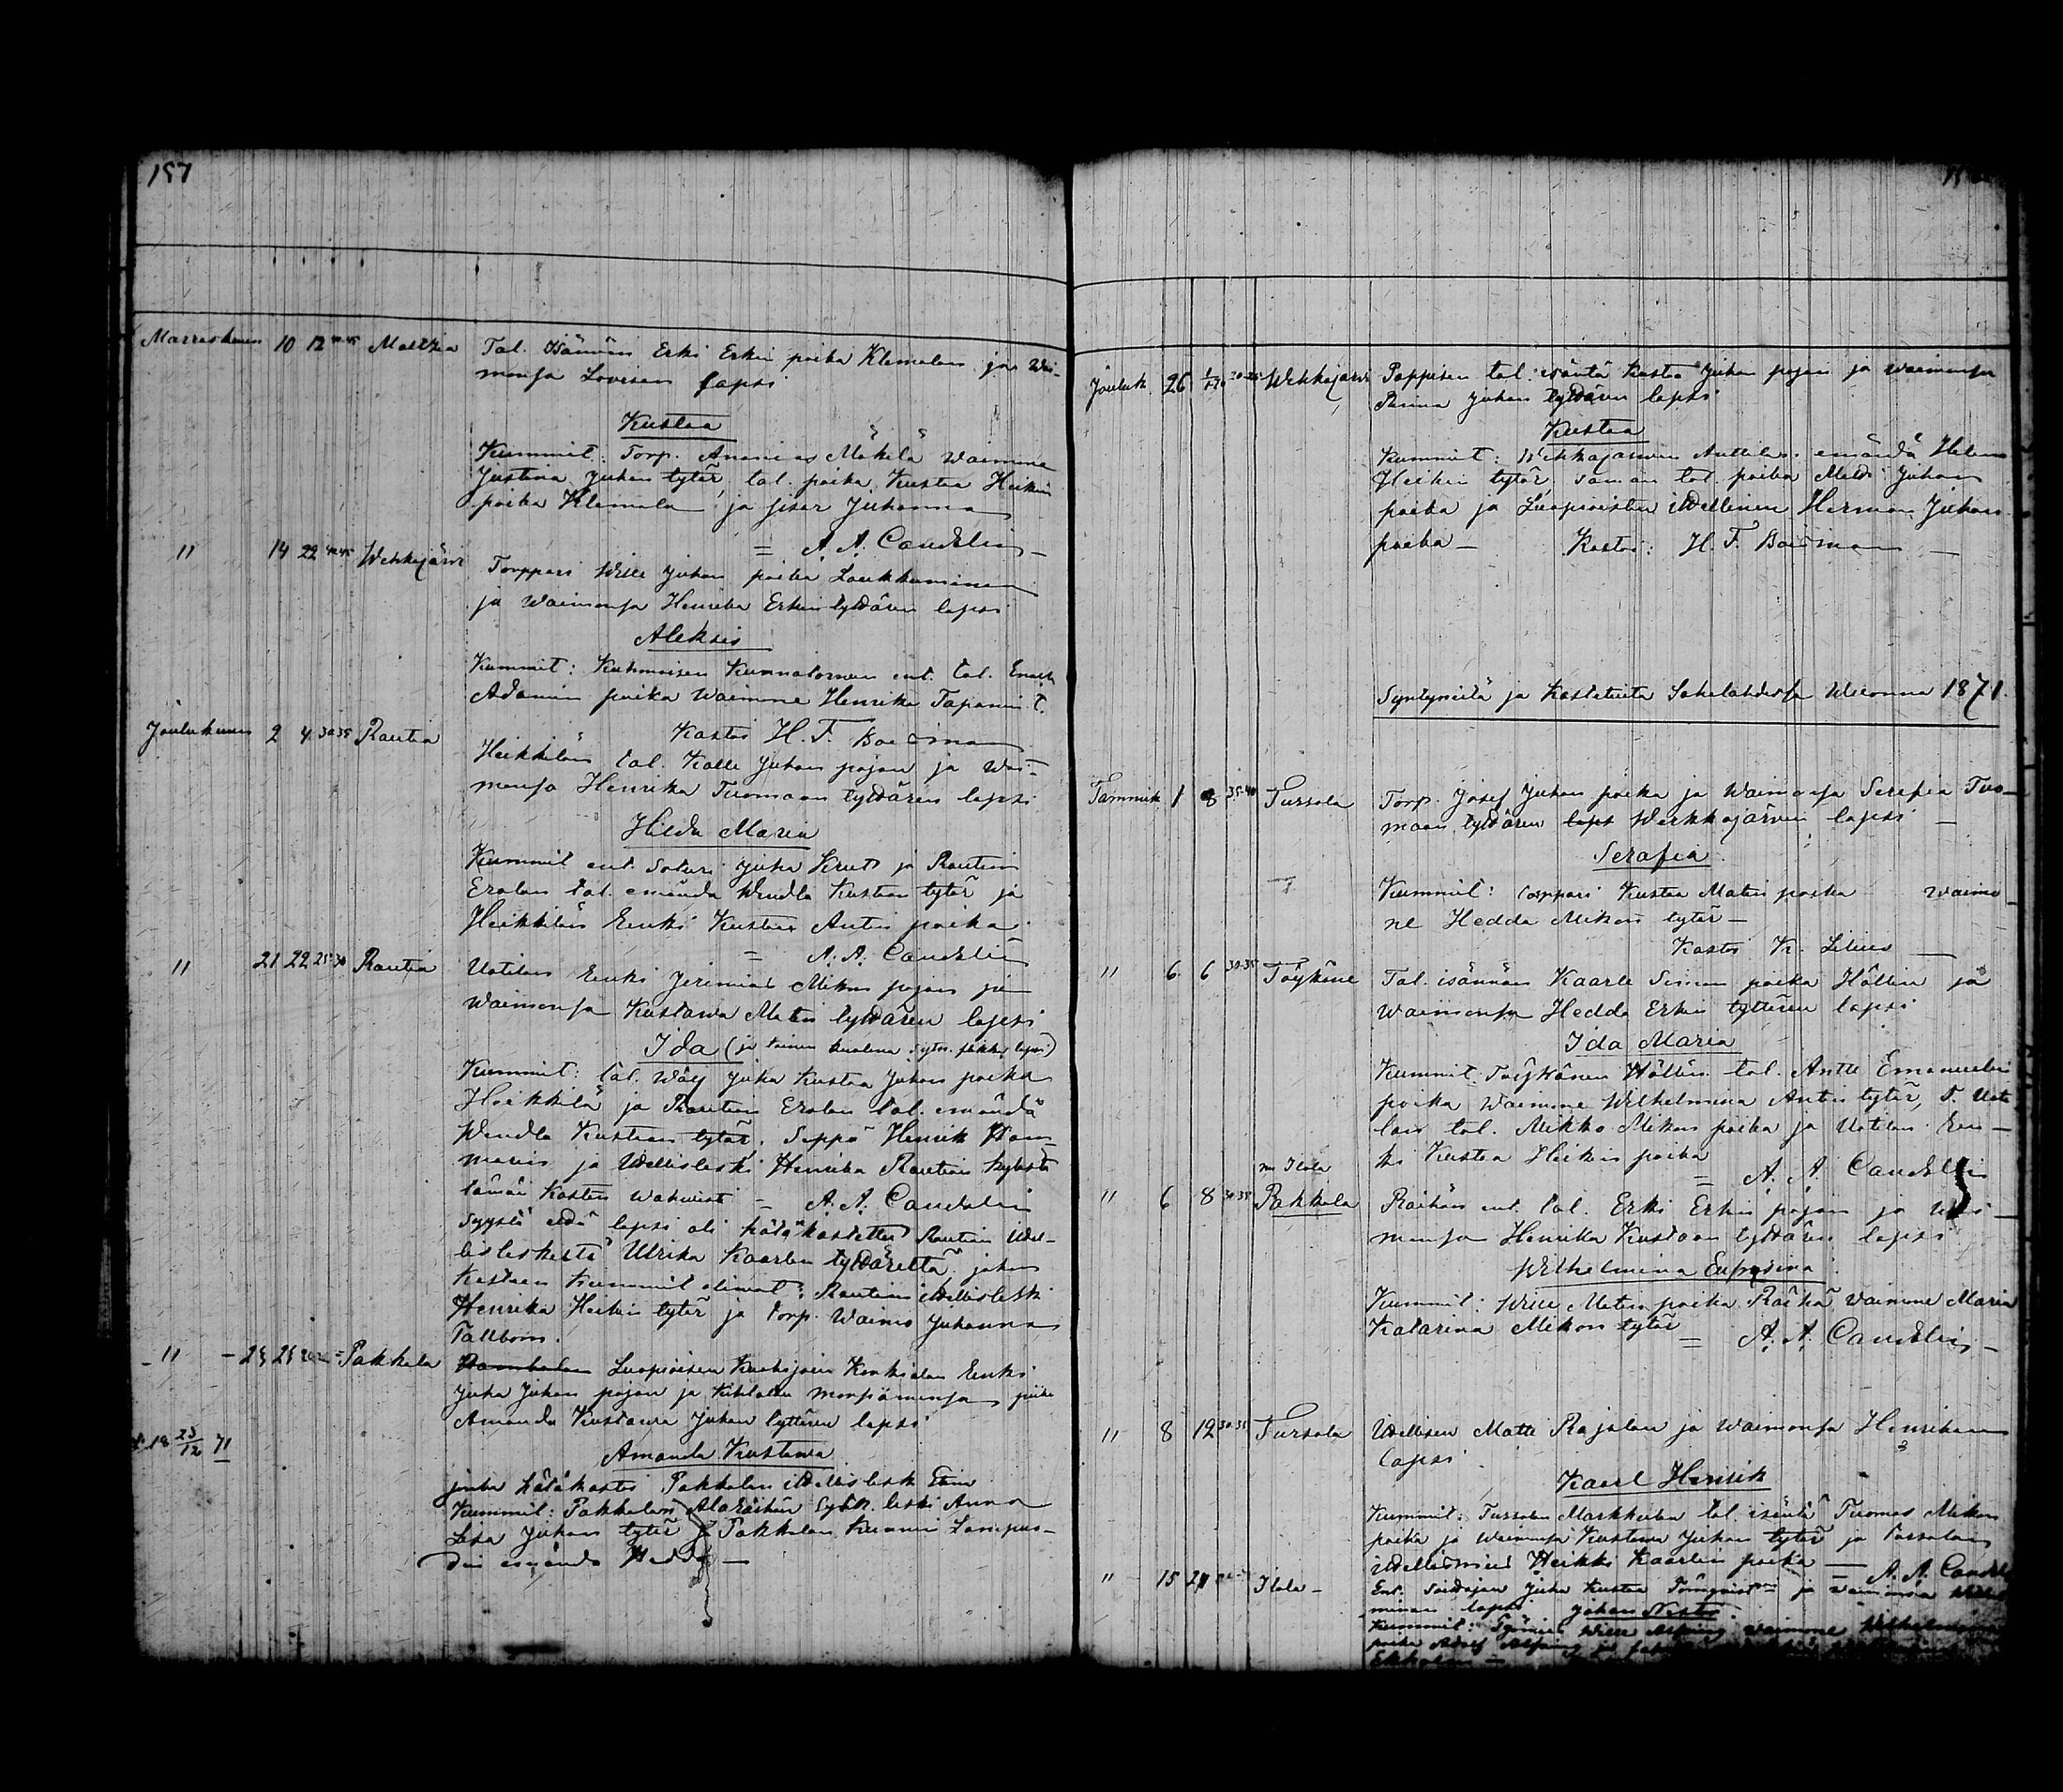 157
Marraskuun 10 12 40-45 Maltzia Tal. Isännän Erki Erkin poika Klemolan ja Wai-
monsa Lovisan lapsi
Kustaa
Kummit: Torp. Ananias Mäkelä waimme
Justina Juhan tytär, tal. poika Kustaa Heikin
poika Klemola ja sisar Juhanna
= A. A. Candelin –
" 14 22 40-45 Wehkajärvi Torppari Wille Juhan poika Laukkuminen
ja Waimonsa Henrika Erkin tyttären lapsi
Aleksis
Kummit: Kuhmoisen ent. tal. Enok
Adamin poika waimme Henrika Tapanin t.
Kastoi H. F. Boisman
Joulukuun 2 4 30-35 Rautia Heikkilän tal. Kalle Juhan pojan ja Wai-
monsa Henrika Tuomaan tyttären lapsi
Hilda Maria
Kummit ent. Soturi Juha Krut ja Rautian
Erolan tal. emändä Wendla Kustaan tytär ja
Heikkilän Renki Kustaa Antin poika
= A. A. Candelin
" 21 22 25-30 Rautia Uotilan Renki Jeremias Mikon pojan ja
Waimonsa Kustawa Matin tyttären lapsi
Ida (ja toinen kuolena synt. poika lapsi)
Kummit: tal. Wäy Juha Kustaa Juhan poika
Heikkilä ja Rautian Erolan tal. emändä
Wendla Kustaan tytär, Seppä Henrik
ja Itellisleski Henrika Rautian kylästä
tämän Kasten wahwisti – A. A. Candelin
syystä että lapsi oli hätäkastettu Rautian Itel-
lisleskestä Ulrika Kaarlen tyttäreltä johon
Kasteen Kummit olivat: Rautian Itellisleski
Henrika Heikin tytär ja torp. Waimo Juhanna
Tallbom.
" – Pakkala Luopioisen Kuohijoen Renki
Juha Juhan pojan ja morsiamensa piika
Amanda Kustawa Juhan tyttären lapsi
† 18 23/12 71
Amanda Kustawa
jonka hätäkastoi Pakkalan Itellislesk
Kummit: Pakkalan leski Anna
Lisa Juhan tytär ja Pakkalan Lampuo-
din emändä Hedda –
Jouluk. 26 1/1 71 20-25 Wehkajärvi Pappisen tal. isäntä Kusta Juhan pojan ja waimonsa
Juhan tyttären lapsi
Kustaa
Kummit: Wehkajärven Anttilan emändä Helena
Heikin tytär, saman tal. poika Matti Juhan
poika ja Luopioisten itellinen Herman Juhan
poika – Kastoi: H. F. Boisman –
Syntyneitä ja Kastetuita Sahalahdessa Wuonna 1871.
Tammik. 1 8 35-40 Tursola Torp. Josef Juhan poika ja Waimonsa Serafia Tuo-
maan tyttären laps Wehkajärven lapsi –
Serafia
Kummit: torppari Kustaa Matin poika waimo
ne Hedda Mikon tytär –
Kastoi K. Lilius –
" 6 6 30-35 Töykäne Tal. isännän Kaarle Simon poika Höltin ja
Waimonsa Hedda Erkin tyttären lapsi
Ida Maria
Kummit: Töykänen Höltin tal. Antti Emanuelin
poika waimme Wilhelmina Antin tytär, T. Uoti
lan tal. Mikko Mikon poika ja Uotilan Ren-
ki Kustaa Heikin poika
= A. A. Candelin
Itala
" 6 8 30-35 Pakkala Räihän ent. tal. Erki Erkin pojan ja Wai-
monsa Henrika Kustaan tyttären lapsi
Wilhelmina Eufrosina
Kummit: Wille Matin poika Räihä Waimme Maria
Katarina Mikon tytär
= A. A. Candelin –
" 8 12 30-35 Tursola Itellisen Matti Rajalan ja Waimonsa Henrikan
lapsi
Kaarl Henrik
Kummit: Tursolan Markkulan tal. isäntä Tuomas Mikon
poika ja Waimonsa Kustawa Juhan tytär ja Tursolan
itellismies Heikki Kaarlen poika – = A. A. Candel
" 15 21 Itala – Ent. Juha Kustaa Törnqvist ja waimonsa Wilhel
minan lapsi Johan Nestor
Kummit: Wille waimme Wilhelmina
poika Adolf